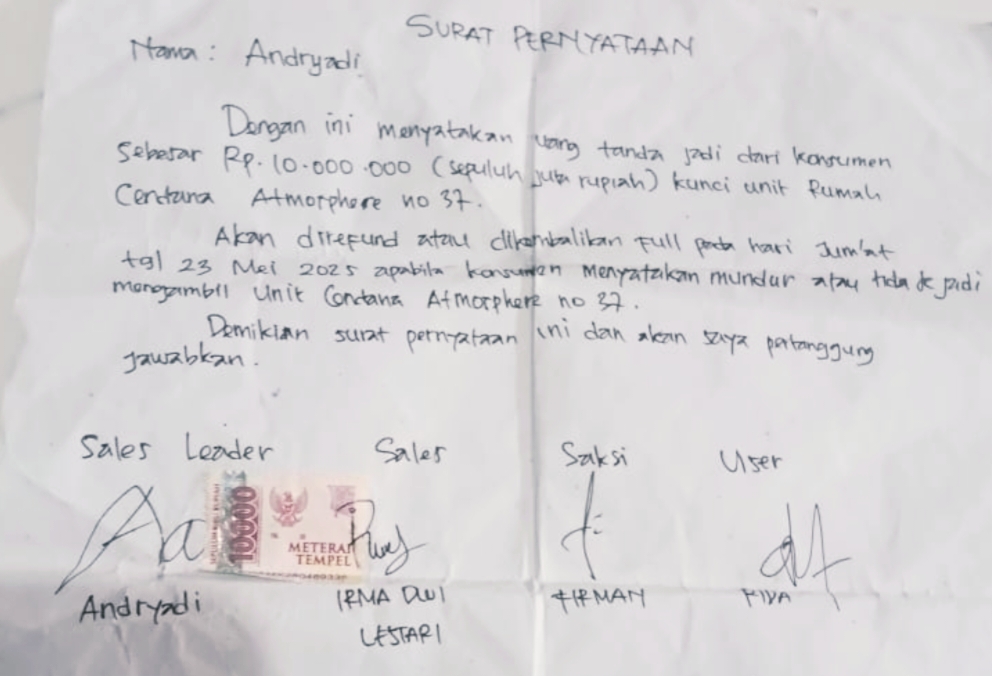 SURAT PERNYATAAN
Nama : Andryadi
Dengan ini menyatakan uang tanda jadi dari konsumen
Sebesar Rp. 10.000.000 (sepuluh juta rupiah) kunci unit Rumah
Cendana Atmorphere no 37.
Akan direfund atau dikembalikan Full pada hari Jum'at
tgl 23 Mei 2025 apabila konsumen menyatakan mundur atau tidak jadi
mengambil Unit Cendana Atmorphere no 37.
Demikian surat pernyataan ini dan akan saya pertanggung
jawabkan.
Sales Leader Sales Saksi User
10000
METERAI
TEMPEL
Andryadi IRMA DWI FIRMAN
LESTARI